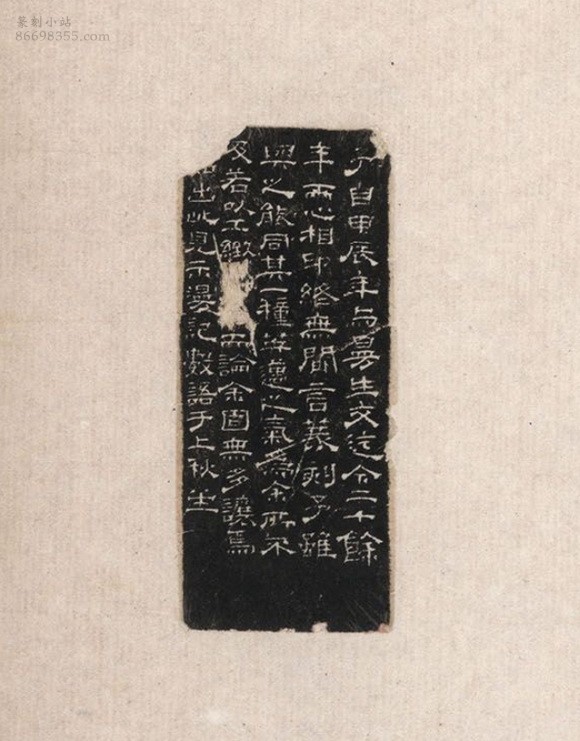 篆刻小站
86698355.com
予自甲辰年与曼生交迄今二十餘
年兩心相印終無間言篆刻予雖
與之能同其一種英邁之氣為余所不
及若以工緻而論余固無多讓焉
出此見示漫記數語于上秋堂